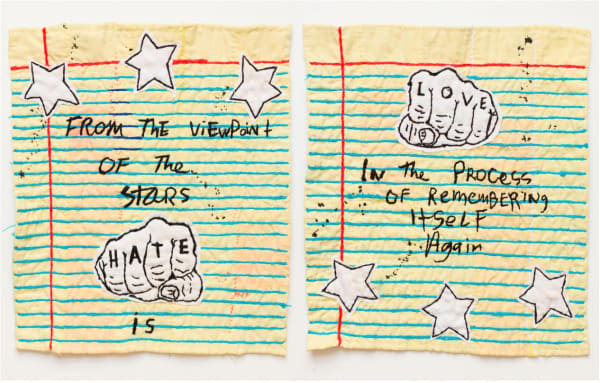 FROM THE VIEWPOINT
OF the
STARS
HATE
is
LOVE
IN the PROCESS
OF REMEMBERING
ItSELF
Again